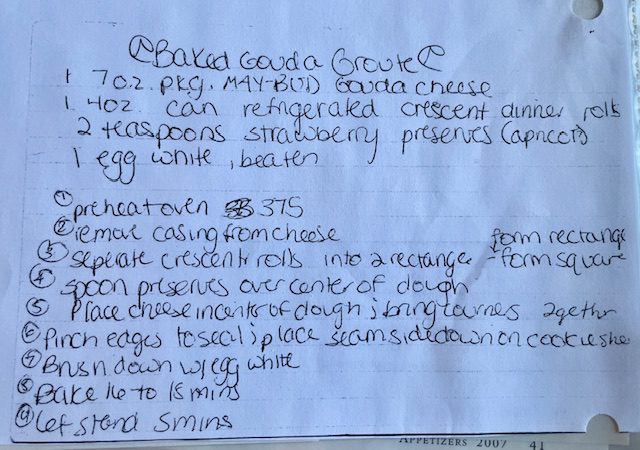 Baked Gouda Groute
1 7 oz. pkg. MAY-BUD Gouda cheese
1 4oz can refrigerated crescent dinner rolls
2 teaspoons strawberry preserves (apricot)
1 egg white, beaten
① preheat oven 375
② remove casing from cheese
form rectange
③ seperate crescent rolls into 2 rectange - form square
④ spoon preserves over center of dough
⑤ Place cheese in center of dough ; bring cornes 2gethr
⑥ Pinch edges to seal ; place seam side down on cookie shee
⑦ Brush down w/ egg white
⑧ Bake 16 to 18 mins
⑨ Let stand 5 mins
APPETIZERS 2007 41